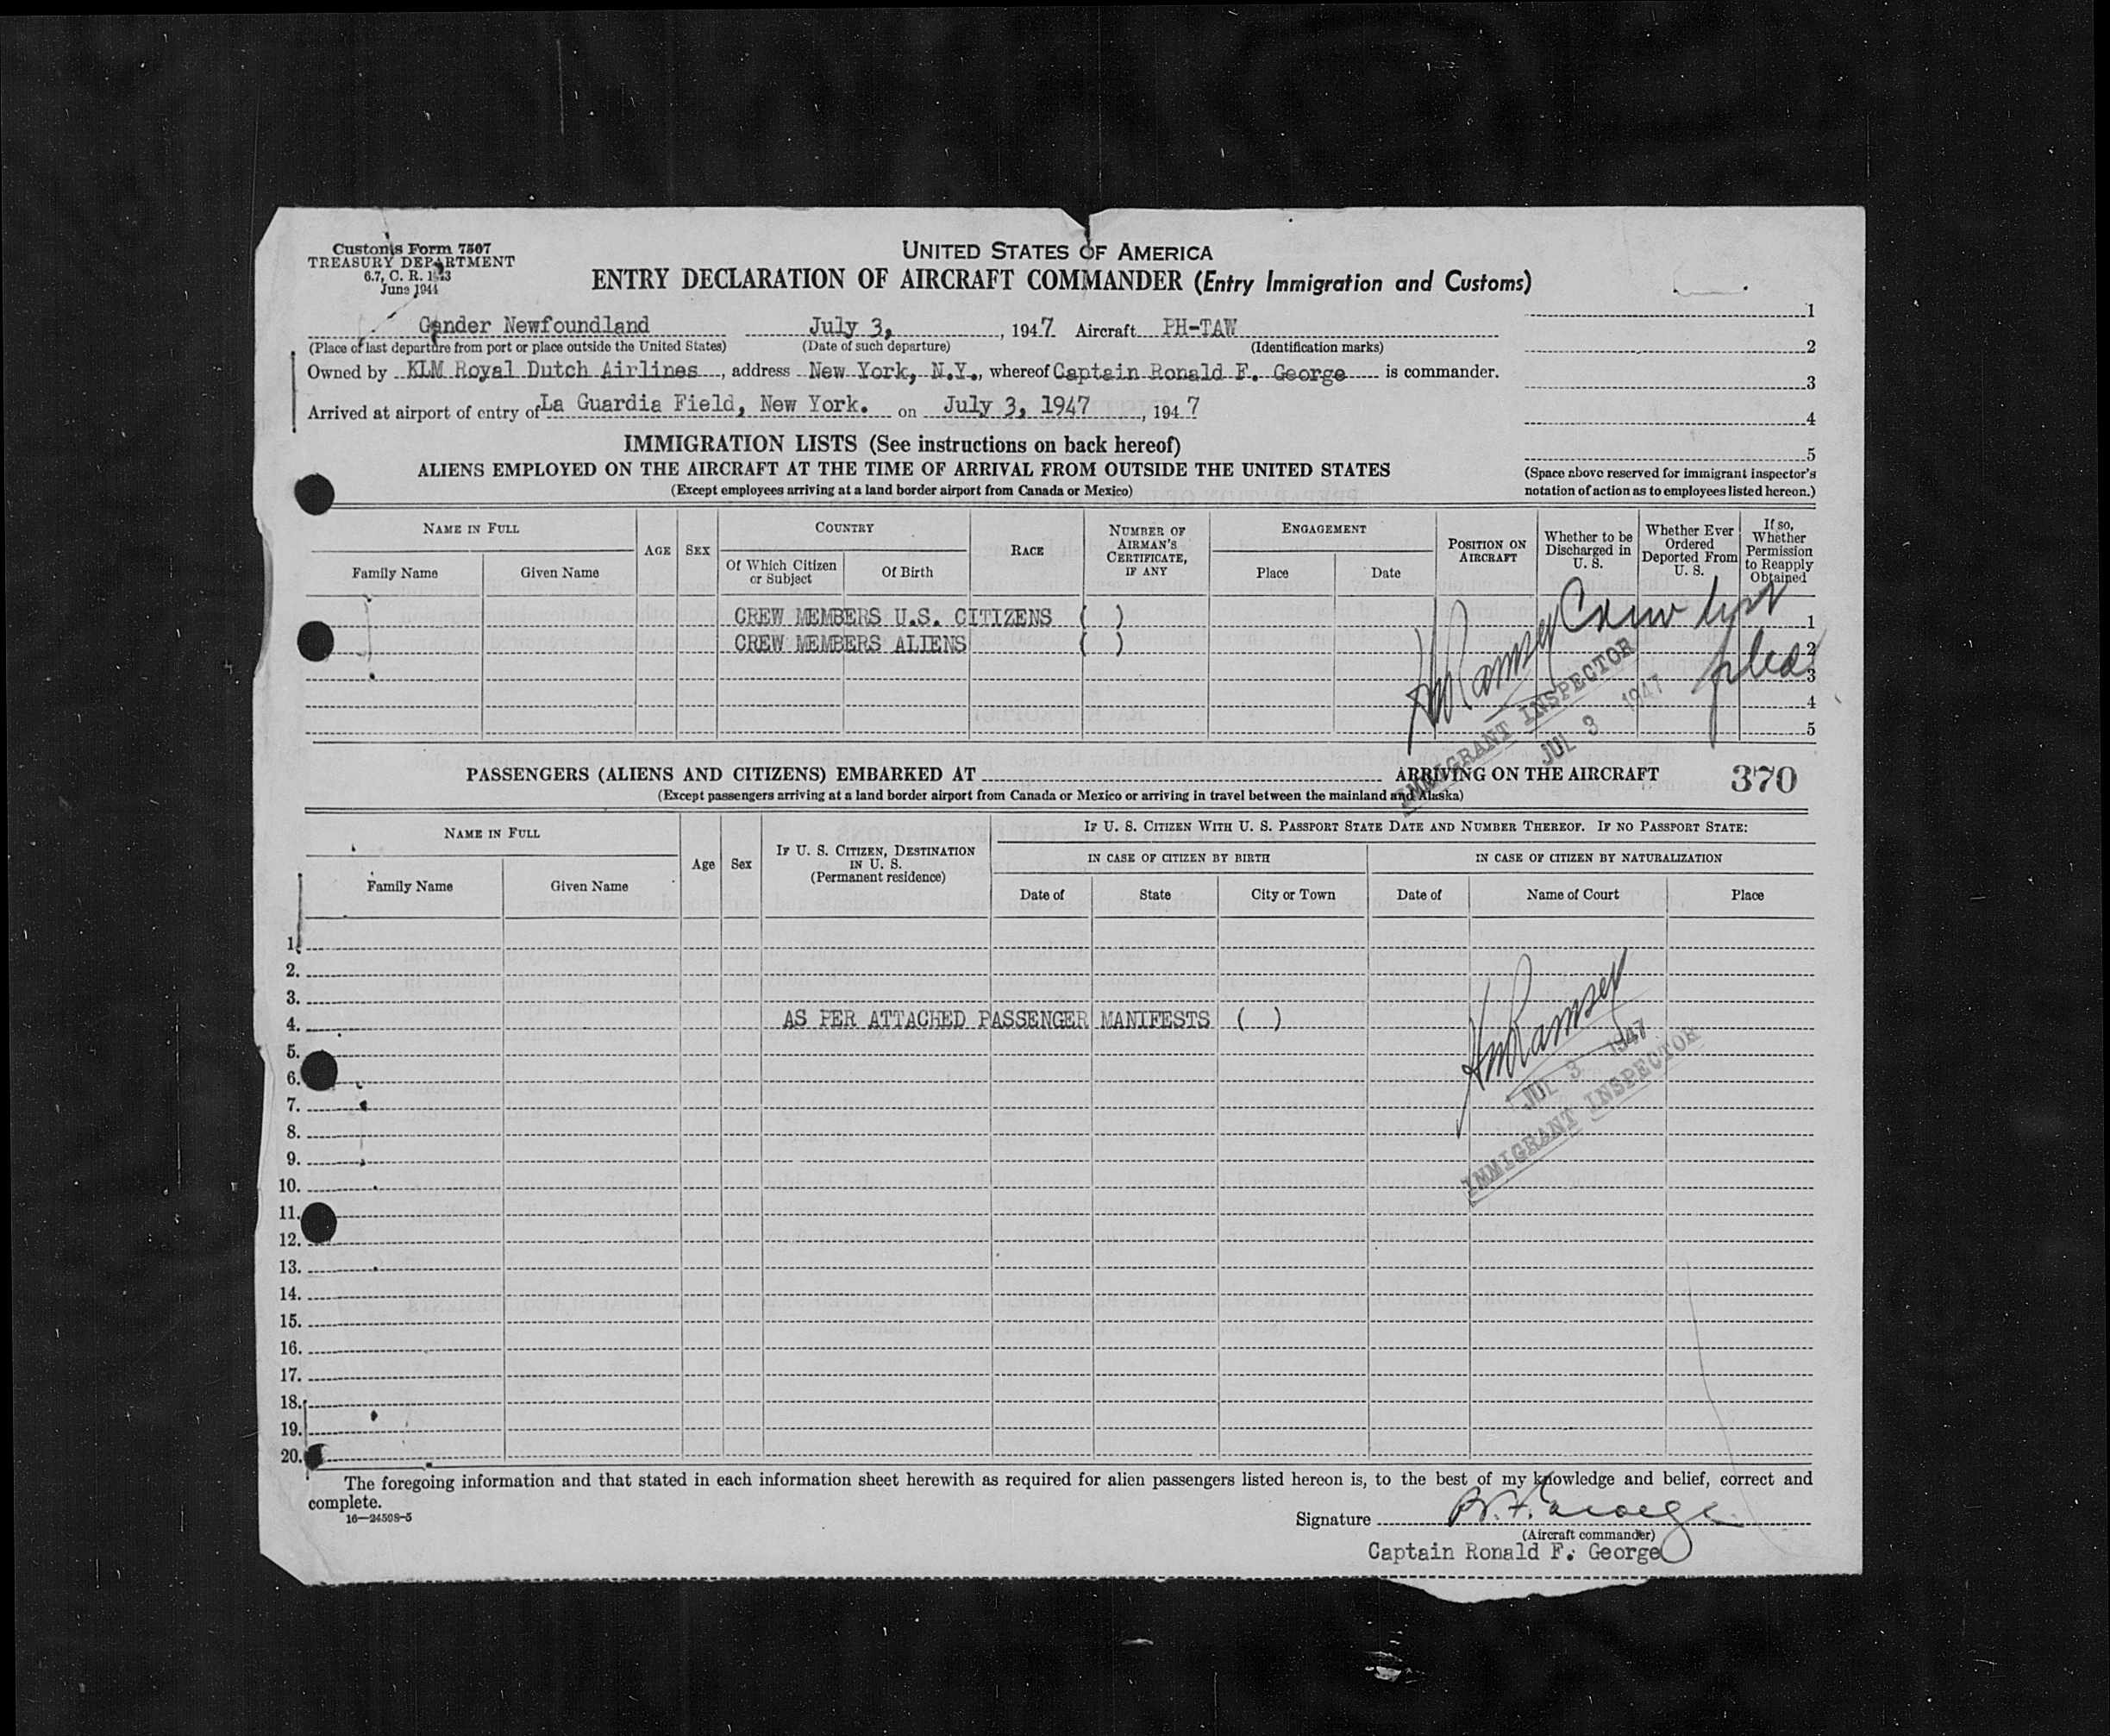 Customs Form 7507
TREASURY DEPARTMENT
June 1944
UNITED STATES OF AMERICA
ENTRY DECLARATION OF AIRCRAFT COMMANDER (Entry Immigration and Customs)
Gander Newfoundland July 3, , 1947 Aircraft PH-TAW
(Place of last departure from port or place outside the United States) (Date of such departure) (Identification marks)
Owned by KLM Royal Dutch Airlines , address New York, N.Y., whereof Captain Ronald F. George is commander.
Arrived at airport of entry of La Guardia Field, New York. on July 3, 1947 , 1947
1
2
3
4
5
(Space above reserved for immigrant inspector's
notation of action as to employees listed hereon.)
IMMIGRATION LISTS (See instructions on back hereof)
ALIENS EMPLOYED ON THE AIRCRAFT AT THE TIME OF ARRIVAL FROM OUTSIDE THE UNITED STATES
(Except employees arriving at a land border airport from Canada or Mexico)
NAME IN FULL
Family Name
Given Name
AGE
SEX
COUNTRY
Of Which Citizen
or Subject
Of Birth
RACE
NUMBER OF
AIRMAN'S
CERTIFICATE,
IF ANY
ENGAGEMENT
Place
Date
POSITION ON
AIRCRAFT
Whether to be
Discharged in
U. S.
Whether Ever
Ordered
Deported From
U. S.
If so,
Whether
Permission
to Reapply
Obtained
CREW MEMBERS U.S. CITIZENS ( ) 1
CREW MEMBERS ALIENS ( ) 2
3
4
5
Ramsey
Crew list
filed
IMMIGRANT INSPECTOR
JUL 3 1947
PASSENGERS (ALIENS AND CITIZENS) EMBARKED AT ARRIVING ON THE AIRCRAFT 370
(Except passengers arriving at a land border airport from Canada or Mexico or arriving in travel between the mainland and Alaska)
NAME IN FULL
Family Name
Given Name
Age
Sex
IF U. S. CITIZEN, DESTINATION
IN U. S.
(Permanent residence)
IF U. S. CITIZEN WITH U. S. PASSPORT STATE DATE AND NUMBER THEREOF. IF NO PASSPORT STATE:
IN CASE OF CITIZEN BY BIRTH
IN CASE OF CITIZEN BY NATURALIZATION
Date of
State
City or Town
Date of
Name of Court
Place
1.
2.
3.
4. AS PER ATTACHED PASSENGER MANIFESTS ( )
5.
6.
7.
8.
9.
10.
11.
12.
13.
14.
15.
16.
17.
18.
19.
20.
Ramsey
JUL 3 1947
IMMIGRANT INSPECTOR
The foregoing information and that stated in each information sheet herewith as required for alien passengers listed hereon is, to the best of my knowledge and belief, correct and
complete.
16—24508-5
Signature R. F. George
(Aircraft commander)
Captain Ronald F. George